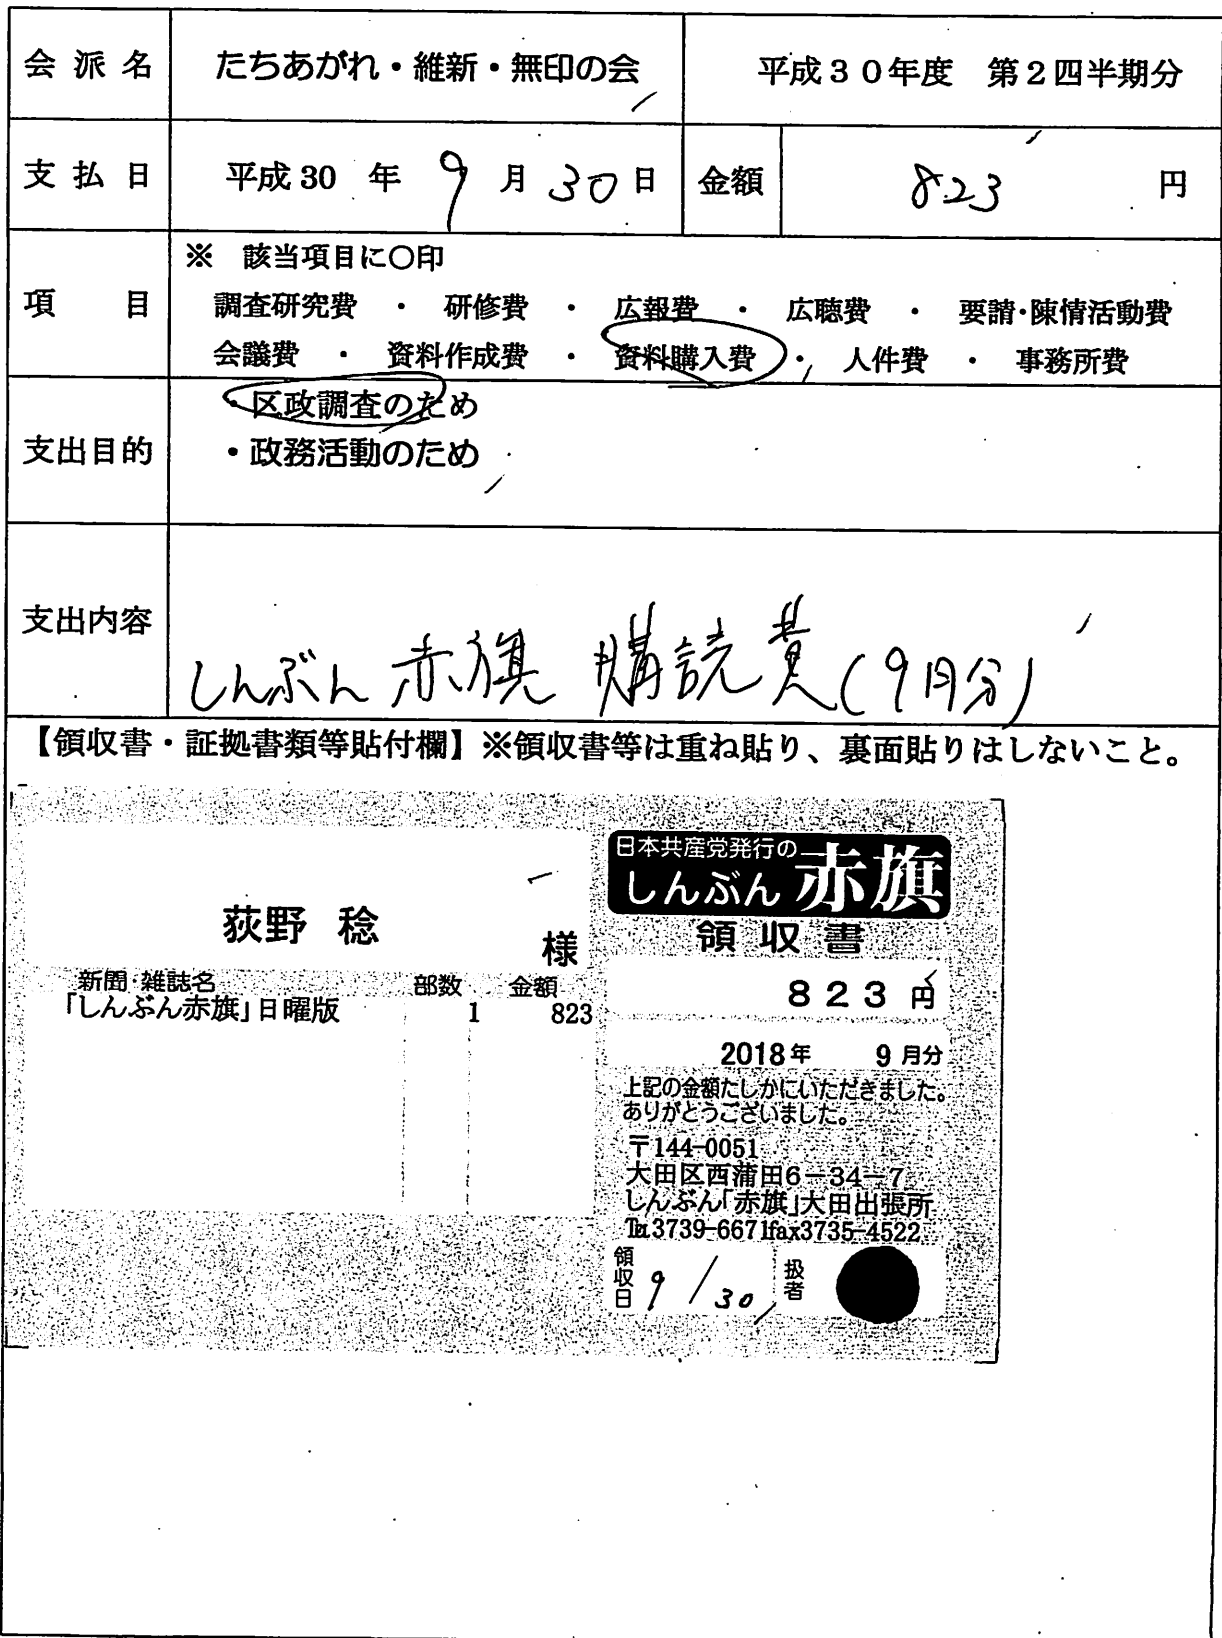 会派名 たちあがれ・維新・無印の会 平成30年度 第2四半期分
支払日 平成30年 9月30日 金額 823 円
項目 ※ 該当項目に〇印
調査研究費 ・ 研修費 ・ 広報費 ・ 広聴費 ・ 要請・陳情活動費
会議費 ・ 資料作成費 ・ 資料購入費 ・ 人件費 ・ 事務所費
支出目的 ・区政調査のため
・政務活動のため
支出内容 しんぶん赤旗 購読費(9月分)
【領収書・証拠書類等貼付欄】※領収書等は重ね貼り、裏面貼りはしないこと。
荻野 稔 様
新聞・雑誌名 部数 金額
「しんぶん赤旗」日曜版 1 823
日本共産党発行の
しんぶん赤旗
領収書
823円
2018年 9月分
上記の金額たしかにいただきました。
ありがとうございました。
〒144-0051
大田区西蒲田6-34-7
しんぶん「赤旗」大田出張所
℡3739-6671fax3735-4522
領収日 9/30 扱者